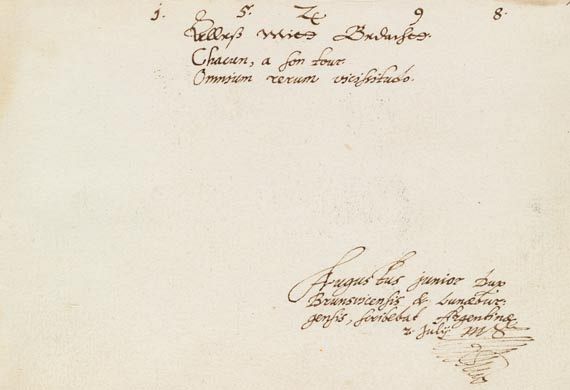 1. 5. Z 9 8.
Alleß Mitt Bedacht.
Chacun, a son tour.
Omnium rerum vicissitudo.
Augustus junior Dux
Brunsvicensis & Lunæbur-
gensis, scribebat Argentinæ
2 July